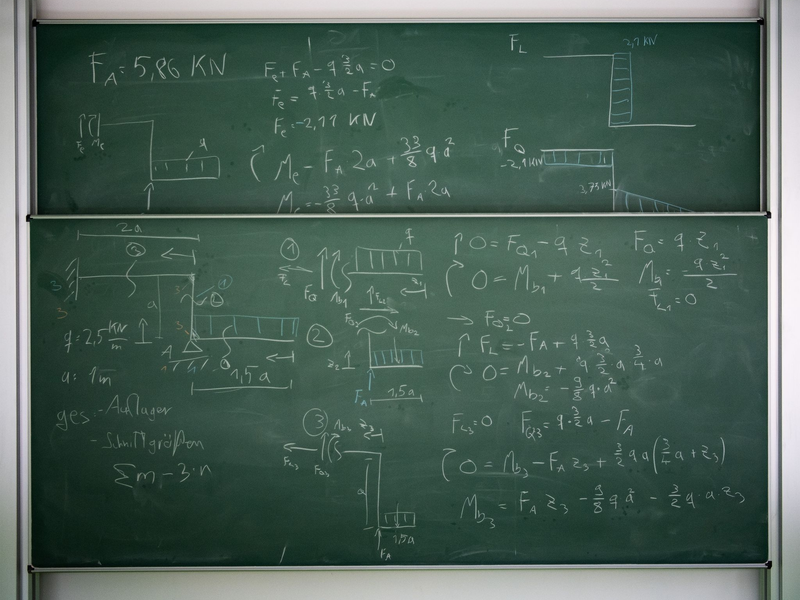 F_A = 5,86 KN
F_e + F_A - q 3/2 a = 0
F_e = q 3/2 a - F_A
F_e = -2,11 KN
M_e - F_A 2a + 33/8 q a²
M_e = -33/8 q·a² + F_A 2a
F_e M_e
q
F_L
2,1 KN
F_Q
-2,1 KN
3,75 KN
2a
3
2
1
3
3
3
a
q = 2,5 KN/m
A
a = 1m
1,5a
ges.: - Auflager
- Schnittgrößen
Σm - 3·n
1
q
F_Q M_b1
z_1
2
F_L2
F_Q2
M_b2
z_2
F_A
1,5a
3
M_b3
z_3
F_L3
F_Q3
a
1,5a
F_A
↑ 0 = F_Q1 - q z_1
F_Q = q z_1
0 = M_b1 + q z_1²/2
M_b1 = - q z_1²/2
F_L1 = 0
→ F_Q2 = 0
↑ F_L = -F_A + q 3/2 a
0 = M_b2 + q 3/2 a 3/4 a
M_b2 = -9/8 q·a²
F_L3 = 0
F_Q3 = q·3/2 a - F_A
0 = M_b3 - F_A z_3 + 3/2 q a (3/4 a + z_3)
M_b3 = F_A z_3 - 9/8 q a² - 3/2 q·a·z_3